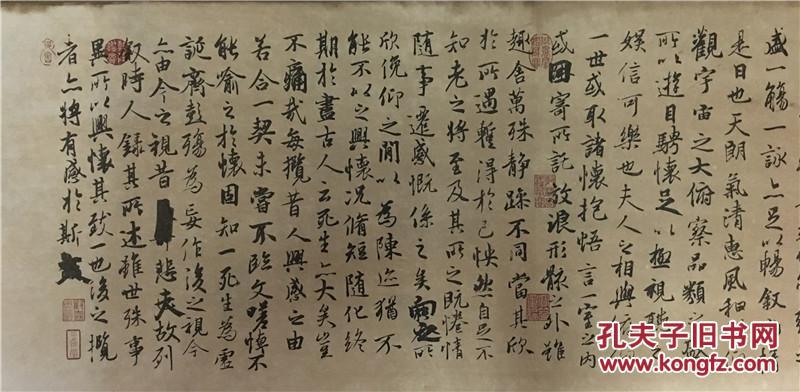 盛一觴一詠亦足以暢叙
是日也天朗氣清惠風和
觀宇宙之大俯察品類之
所以遊目騁懷足以極視聽之
娛信可樂也夫人之相與
一世或取諸懷抱悟言一室之内
或因寄所託放浪形骸之外雖
趣舍萬殊靜躁不同當其欣
於所遇暫得於己怏然自足不
知老之將至及其所之既惓情
隨事遷感慨係之矣向之所
欣俛仰之間以為陳迹猶不
能不以之興懷况脩短隨化終
期於盡古人云死生亦大矣豈
不痛哉每攬昔人興感之由
若合一契未嘗不臨文嗟悼不
能喻之於懷固知一死生為虛
誕齊彭殤為妄作後之視今
亦由今之視昔悲夫故列
叙時人錄其所述雖世殊事
異所以興懷其致一也後之攬
者亦將有感於斯文
孔夫子旧书网
KONGFZ.COM